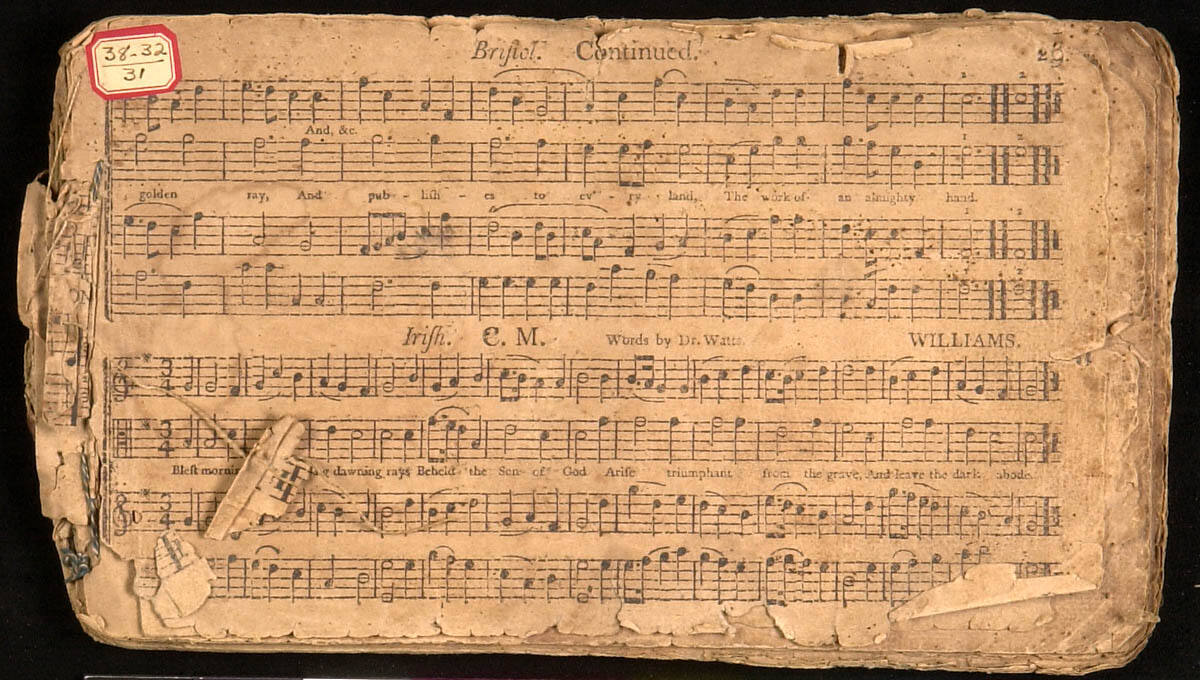 38-32
31
Briſtol. Continued.
And, &c.
golden ray, And pub - liſh - es to ev - ry land, The work of an almighty hand.
Iriſh. C. M. Words by Dr. Watts. WILLIAMS.
3
4
3
4
Bleſt dawning rays Beheld the Son of God Ariſe triumphant from the grave, And leave the dark abode.
3
4